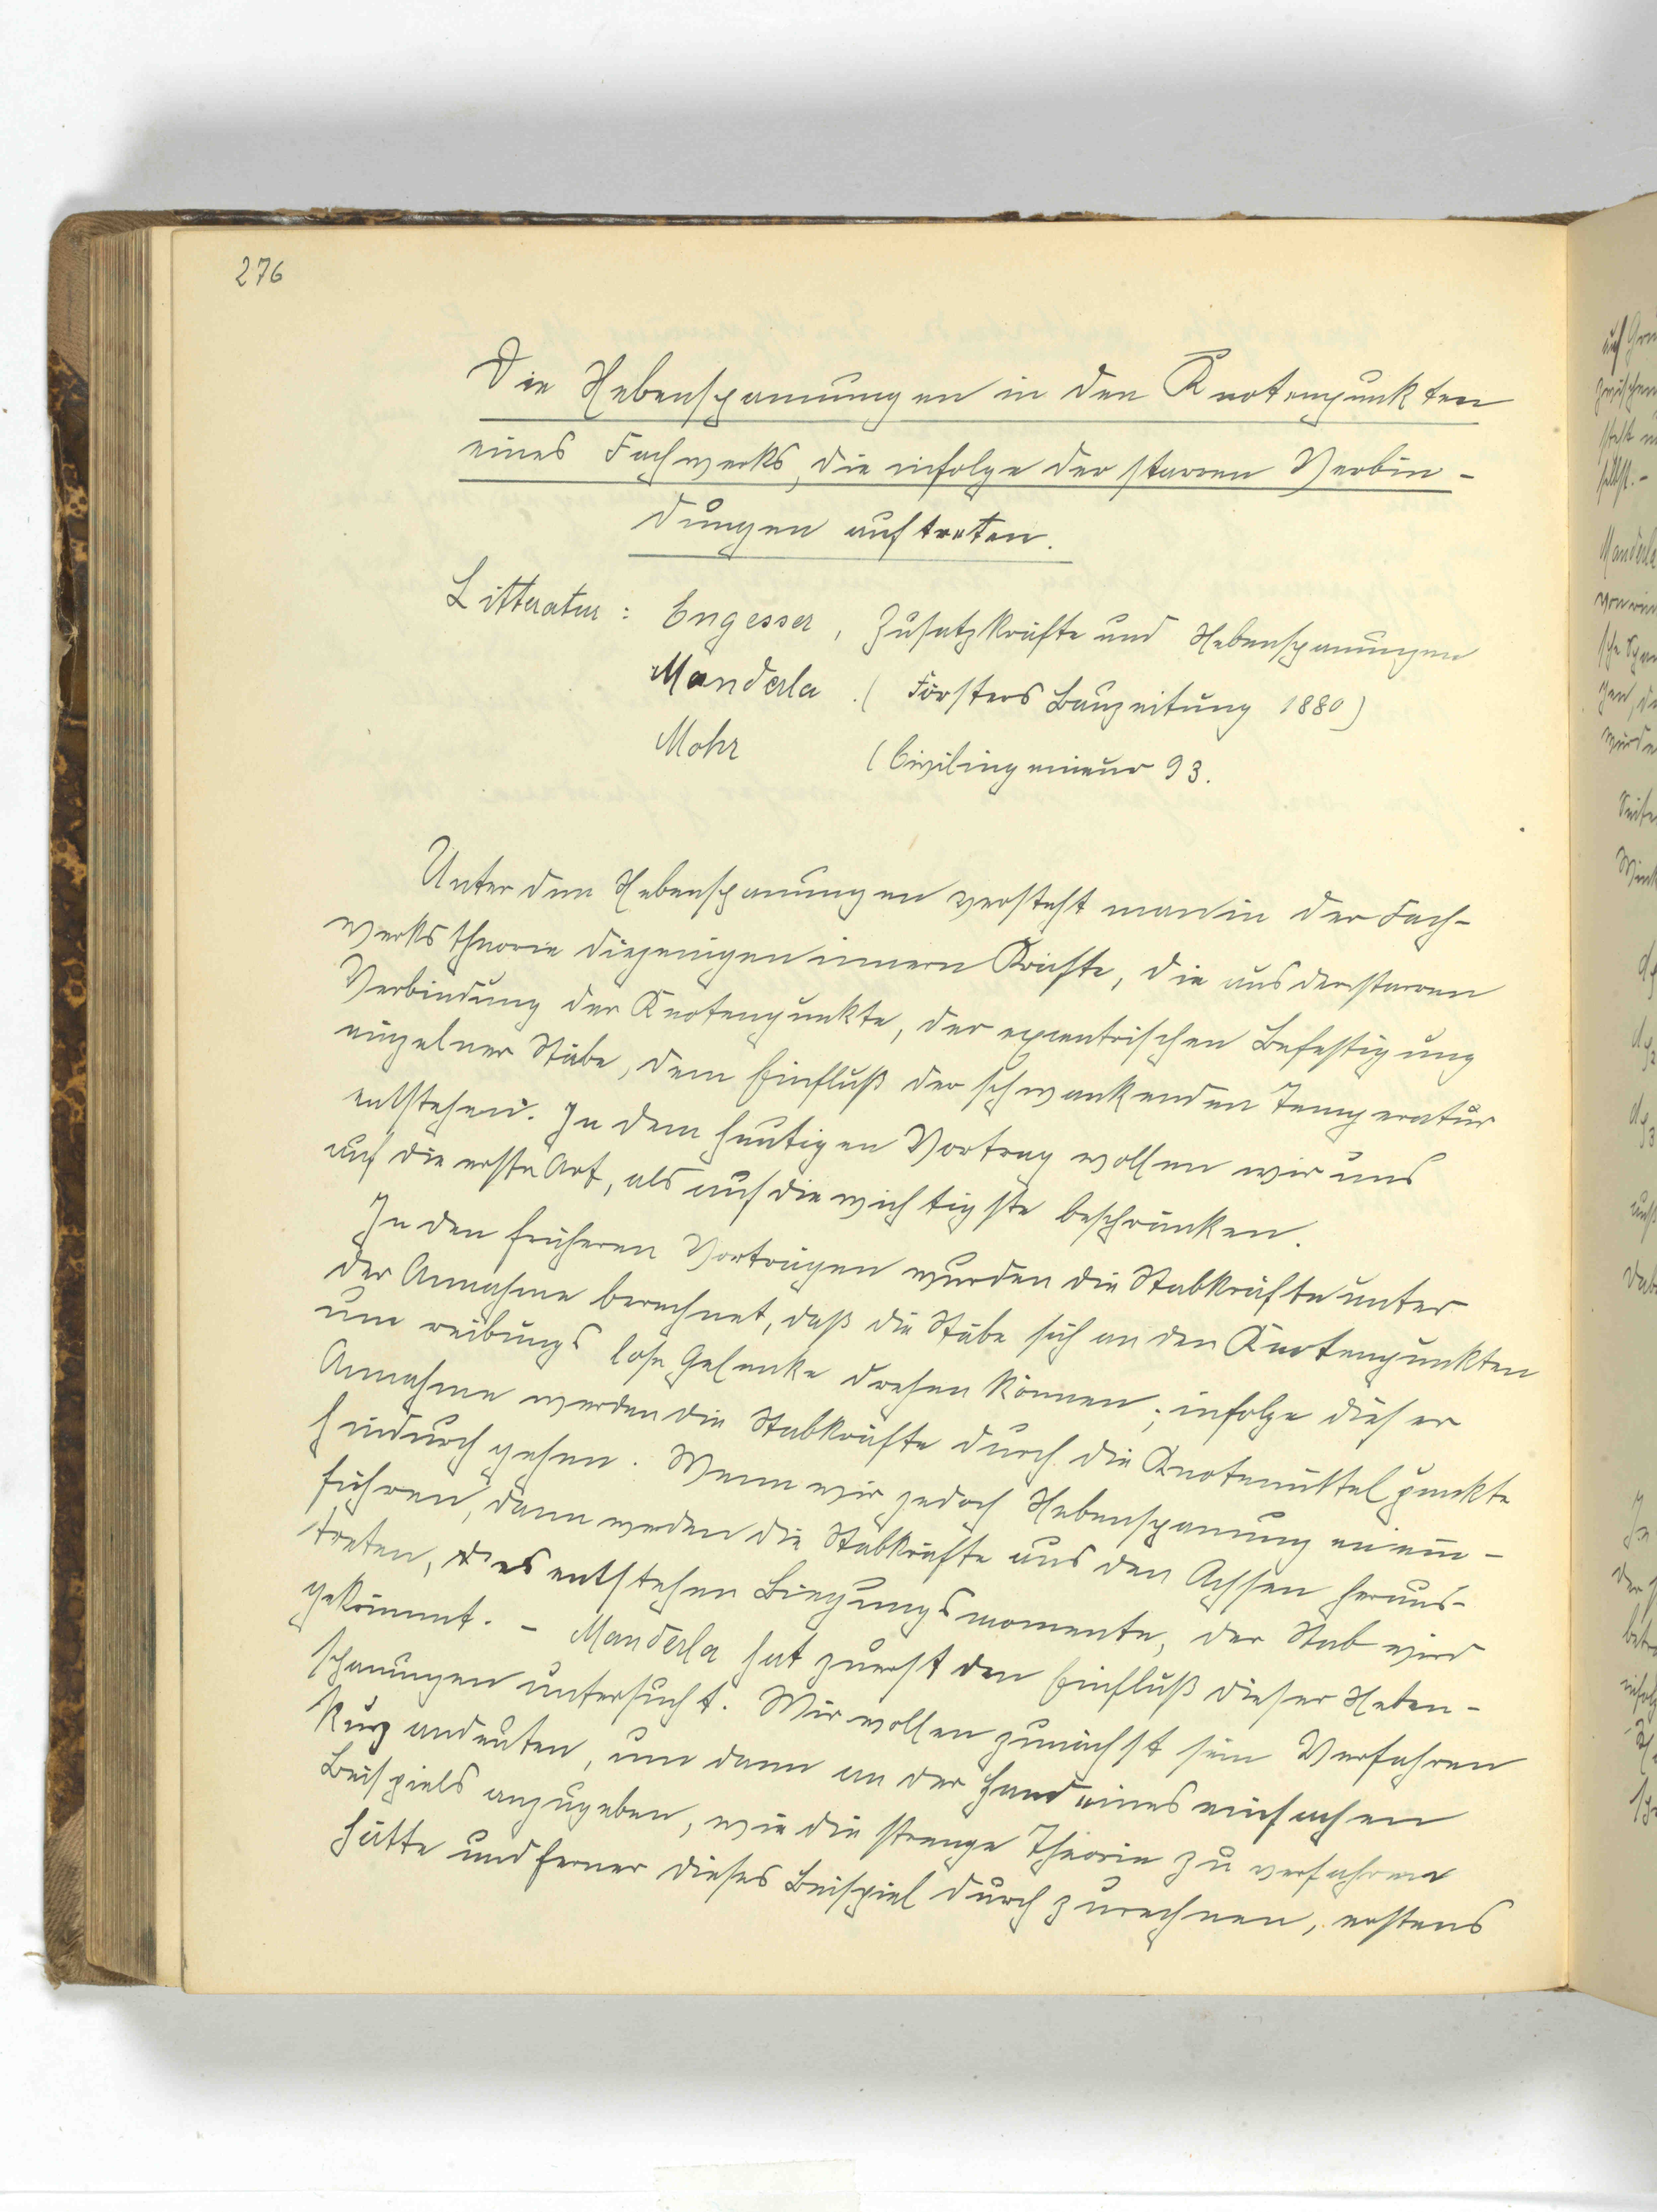 276
Die Nebenspannungen in den Knotenpunkten
eines Fachwerks, die infolge der starren Verbin-
dungen auftreten.
Litteratur: Engesser, Zusatzkräfte und Nebenspannungen
Manderla (Försters Bauzeitung 1880)
Mohr (Civilingenieur 93.
Unter den Nebenspannungen versteht man in der Fach-
werkstheorie diejenigen innern Kräfte, die aus der starren
Verbindung der Knotenpunkte, der exzentrischen Befestigung
einzelner Stäbe, dem Einfluß der schwankenden Temperatur
entstehen. In dem heutigen Vortrag wollen wir uns
auf die erste Art, als auf die wichtigste beschränken.
In den früheren Vorträgen wurden die Stabkräfte unter
der Annahme berechnet, daß die Stäbe sich an den Knotenpunkten
um reibungslose Gelenke drehen können; infolge dieser
Annahme werden die Stabkräfte durch die Knotenmittelpunkte
hindurchgehen. Wenn wir jedoch Nebenspannungen ein-
führen, dann werden die Stabkräfte aus den Achsen heraus-
treten, es entstehen Biegungsmomente, der Stab wird
gekrümmt. - Manderla hat zuerst den Einfluß dieser Neben-
spannungen untersucht. Wir wollen zunächst sein Verfahren
kurz andeuten, um dann an der Hand eines einfachen
Beispiels anzugeben, wie die strenge Theorie zu verfahren
hätte und ferner dieses Beispiel durchzurechnen, erstens